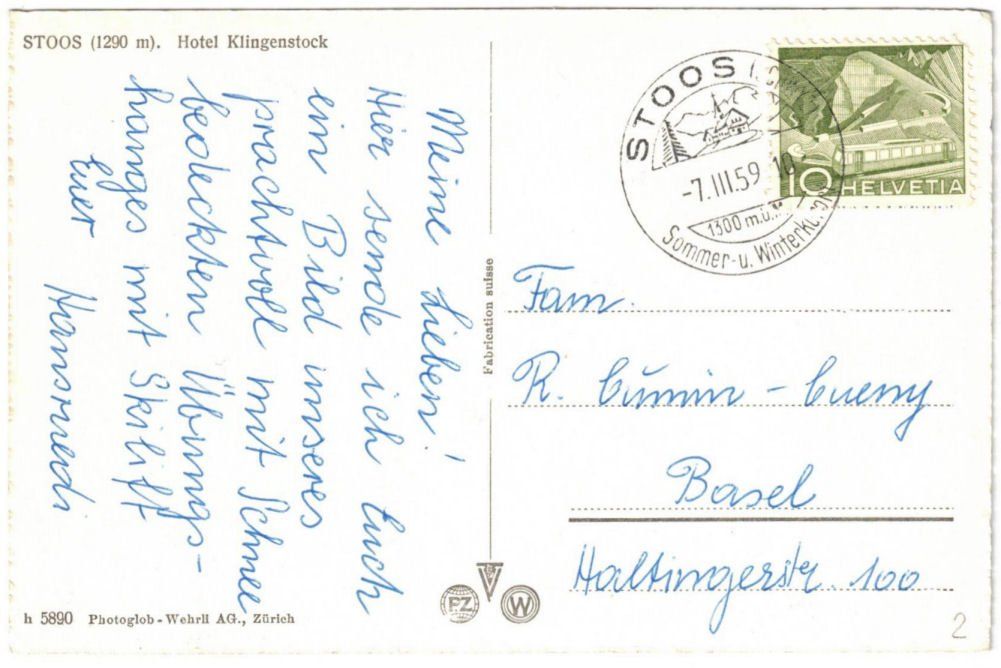 STOOS (1290 m). Hotel Klingenstock
Meine Lieben!
Hier sende ich Euch
ein Bild unseres
prachtvoll mit Schnee
bedeckten Übungs-
hanges mit Skilift
Euer Hansruedi
h 5890 Photoglob-Wehrli AG., Zürich
Fabrication suisse
PZ
W
STOOS
-7.III.59.-10
1300 m.ü.M
Sommer-u. Winterkuro
10 HELVETIA
Fam.
R. Cumin - Cueny
Basel
Haltingerstr. 100
2